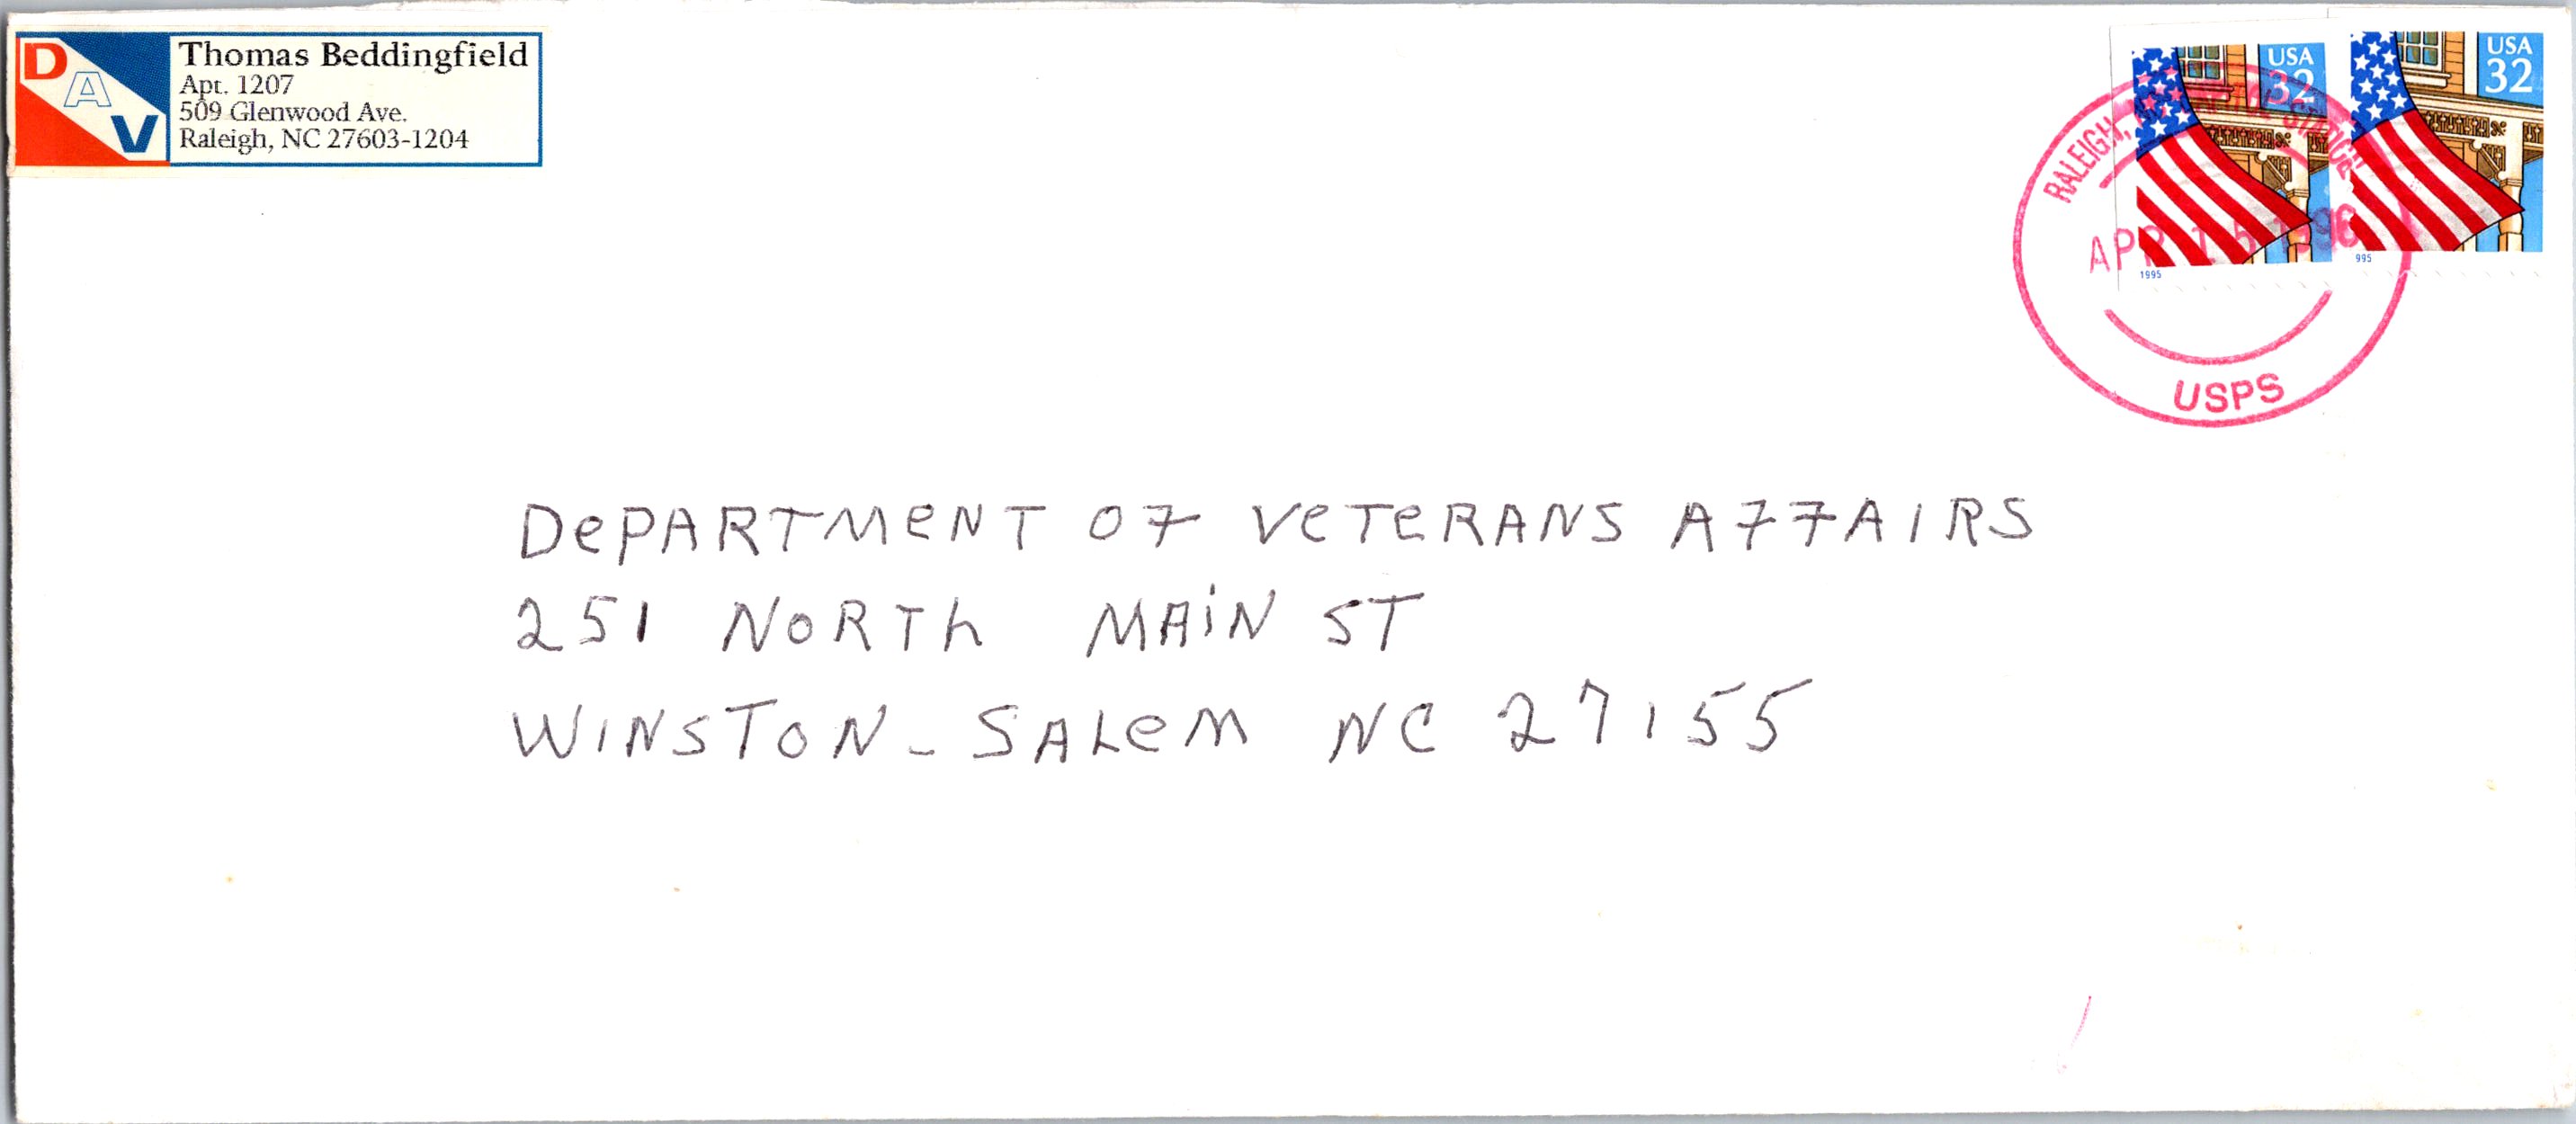 D
A
V
Thomas Beddingfield
Apt. 1207
509 Glenwood Ave.
Raleigh, NC 27603-1204
USA
32
USA
32
RALEIGH,
APR 15 1996
1995
995
USPS
DePARTMeNT OF VeTeRANS AFFAIRS
251 NORTh MAiN ST
WINSTON-SALeM NC 27155